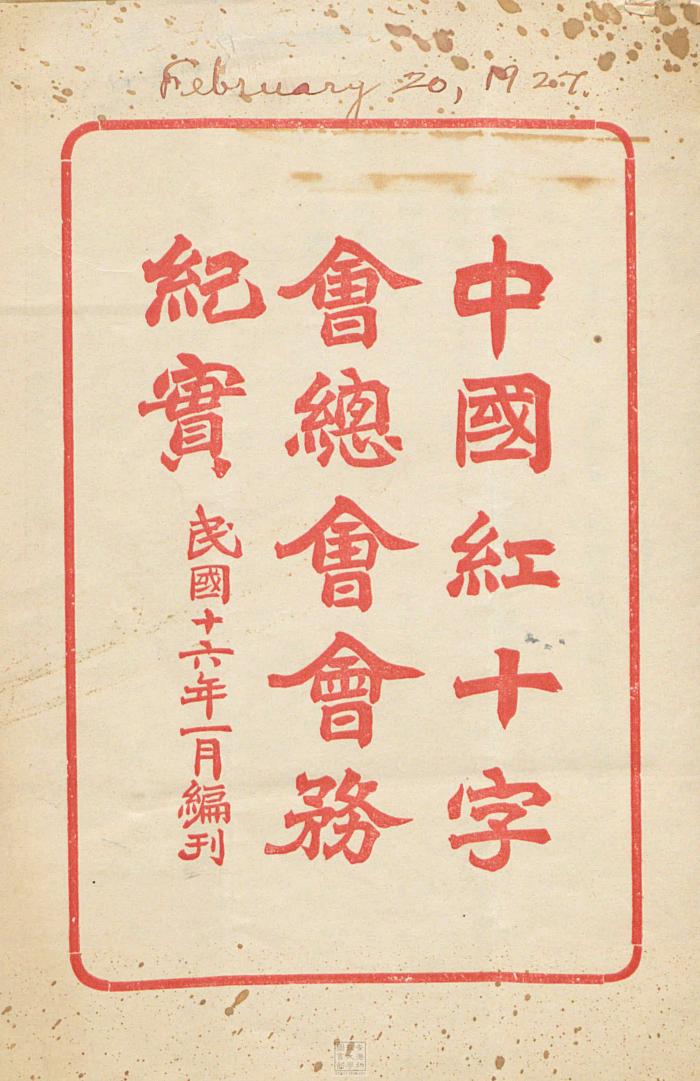 February 20, 1927.
中國紅十字
會總會會務
紀實
民國十六年一月編刊